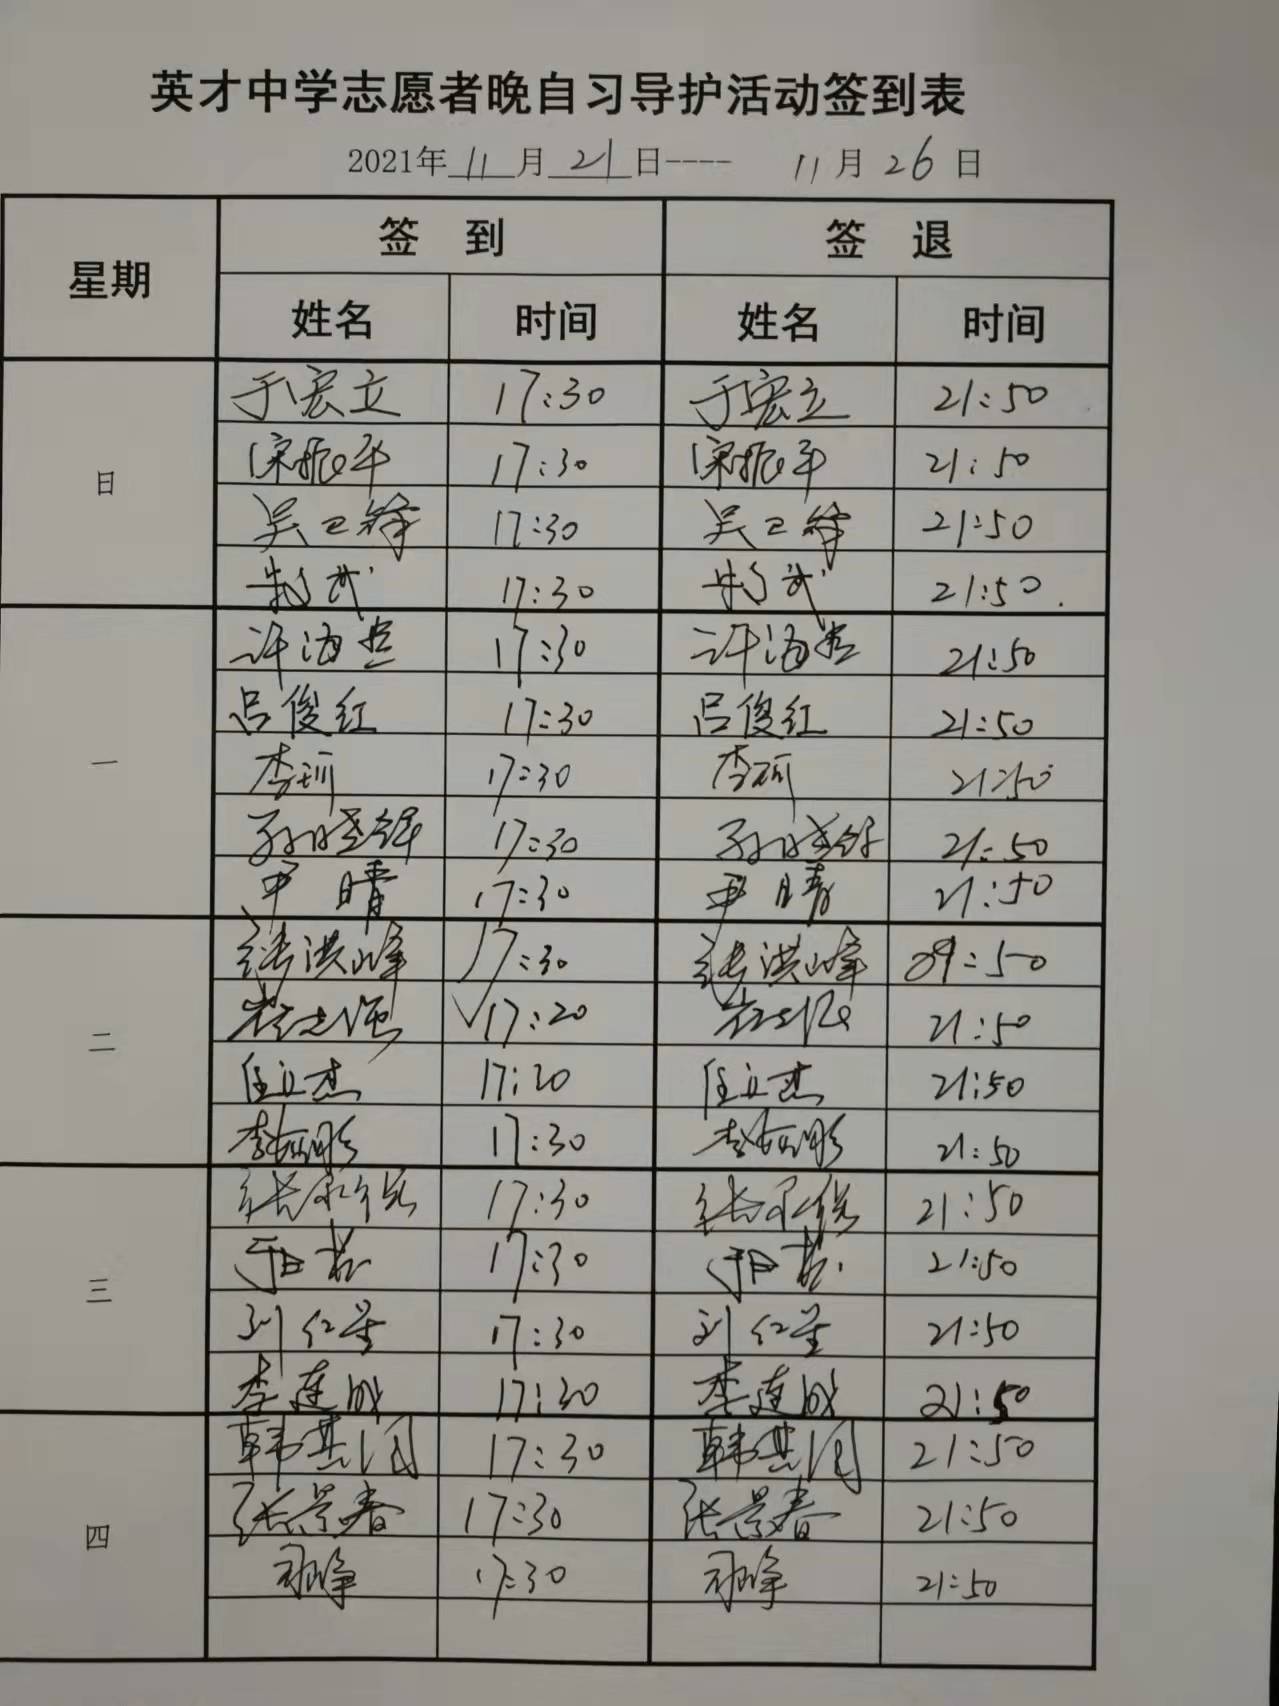 英才中学志愿者晚自习导护活动签到表
2021年 11 月 21 日---- 11 月 26 日
星期 签 到 签 退
姓名 时间 姓名 时间
日
于宏立 17:30 于宏立 21:50
宋振平 17:30 宋振平 21:50
吴卫锋 17:30 吴卫锋 21:50
17:30 21:50.
一
许海 17:30 许海 21:50
吕俊红 17:30 吕俊红 21:50
李 17:30 李 21:50
孙晓锋 17:30 孙晓锋 21:50
尹晴 17:30 尹晴 21:50
二
张洪峰 17:30 张洪峰 09:50
崔志强 17:20 崔志强 21:50
任立杰 17:20 任立杰 21:50
李 17:30 李 21:50
三
张 17:30 张 21:50
17:30 21:50
刘仁星 17:30 刘仁星 21:50
李连成 17:30 李连成 21:50
四
韩其润 17:30 韩其润 21:50
张景春 17:30 张景春 21:50
17:30 21:50